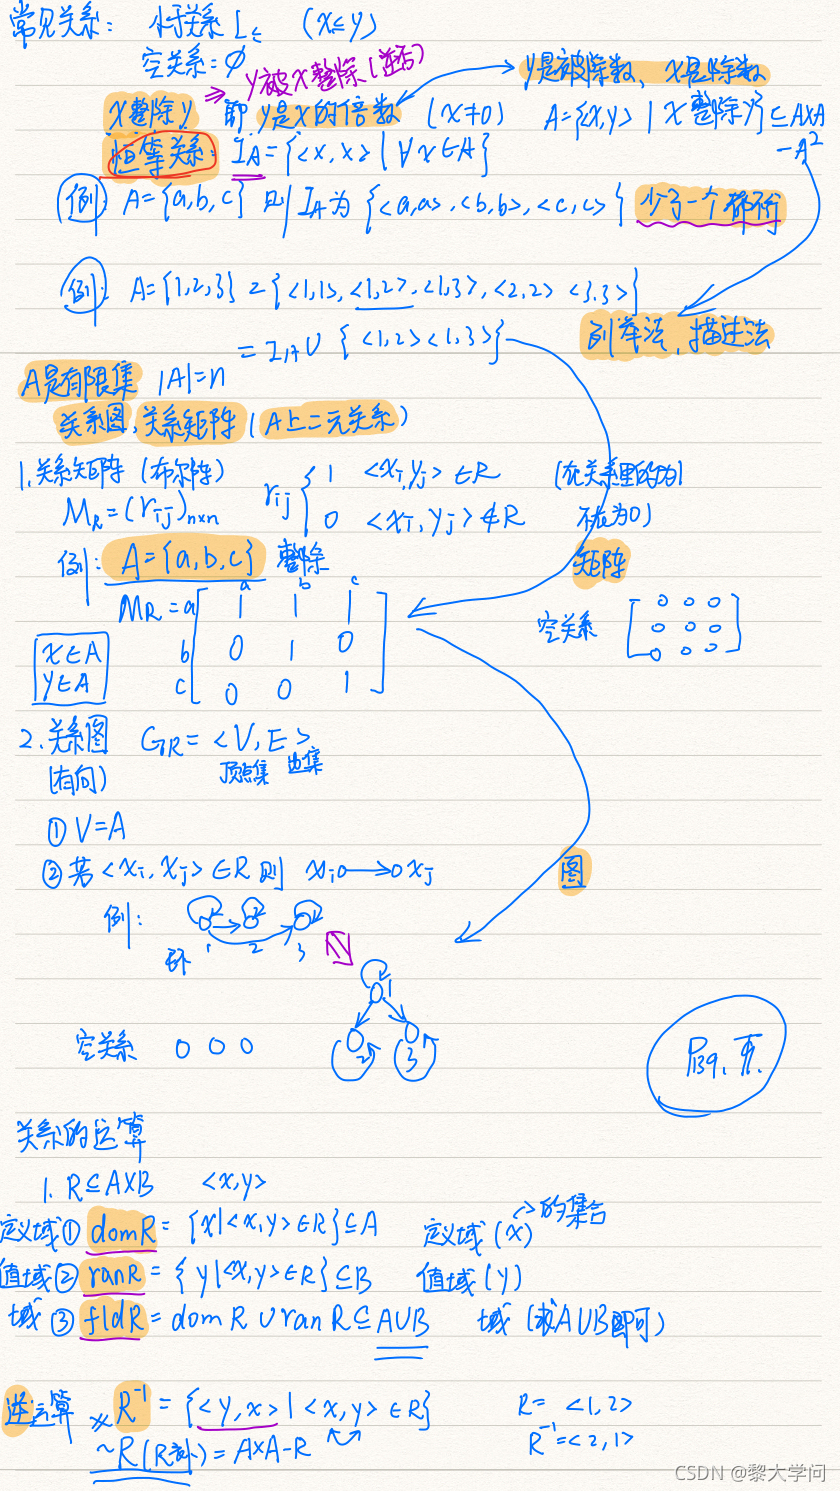 常见关系： 小于关系 L≤ (x≤y)
空关系=∅
⇒ y被x整除(逆否)
y是被除数、x是除数
x整除y 即 y是x的倍数 (x≠0) A={<x,y> | x整除y}⊆A×A
恒等关系: I_A={<x,x> | ∀x∈A} A²
例: A={a,b,c} 则 I_A为 {<a,a>,<b,b>,<c,c>} 少了一个都不行
例: A={1,2,3} {<1,1>,<1,2>,<1,3>,<2,2> <3,3>}
= I_A∪{<1,2><1,3>} 列举法, 描述法
A是有限集 |A|=n
关系图, 关系矩阵 (A上二元关系)
1.关系矩阵 (布尔阵) r_ij { 1 <x_i,y_j>∈R (在关系里的为1
M_R=(r_ij)n×n 0 <x_i,y_j>∉R 不在为0)
例: A={a,b,c} 整除 矩阵
a b c
M_R = a 1 1 1 空关系 0 0 0
x∈A b 0 1 0 0 0 0
y∈A c 0 0 1 0 0 0
2.关系图 G_R=<V,E>
(有向) 顶点集 边集
① V=A
② 若<x_i,x_j>∈R 则 x_i o→o x_j 图
例:
环 1 2 3
1
空关系 2 3
P39、页.
关系的运算
1. R⊆A×B <x,y>
<>的集合
定义域① domR={x|<x,y>∈R}⊆A 定义域(x)
值域② ranR={y|<x,y>∈R}⊆B 值域(y)
域③ fldR=domR∪ranR⊆A∪B 域 (求A∪B即可)
逆运算 ※ R⁻¹={<y,x>|<x,y>∈R} R= <1,2>
~R(R补)=A×A-R R⁻¹=<2,1>
CSDN @黎大学问